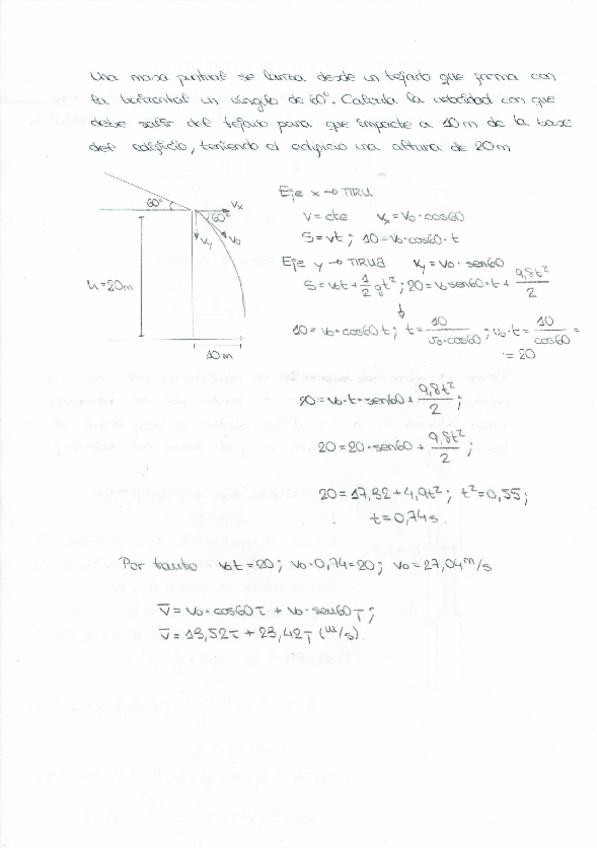 Una masa puntual se lanza desde un tejado que forma con
la horizontal un ángulo de 60°. Calcula la velocidad con que
debe salir del tejado para que impacte a 10m de la base
del edificio, teniendo el edificio una altura de 20m
60°
Vx
60°
Vy
Vo
h=20m
10m
Eje x → MRU
V = cte Vx = Vo·cos60
S = vt ; 10 = Vo·cos60·t
Eje y → MRUA Vy = Vo·sen60
S = Vot + 1/2 gt² ; 20 = Vo sen60·t + 9,8t²/2
↓
10 = Vo·cos60 t ; t = 10/Vo·cos60 ; Vo·t = 10/cos60 =
= 20
20 = Vo·t·sen60 + 9,8t²/2 ;
20 = 20·sen60 + 9,8t²/2 ;
20 = 17,32 + 4,9t² ; t² = 0,55 ;
t = 0,74 s.
Por tanto Vot = 20 ; Vo·0,74 = 20 ; Vo = 27,04 m/s
v̄ = Vo·cos60 i + Vo·sen60 j ;
v̄ = 13,52 i + 23,42 j (m/s)